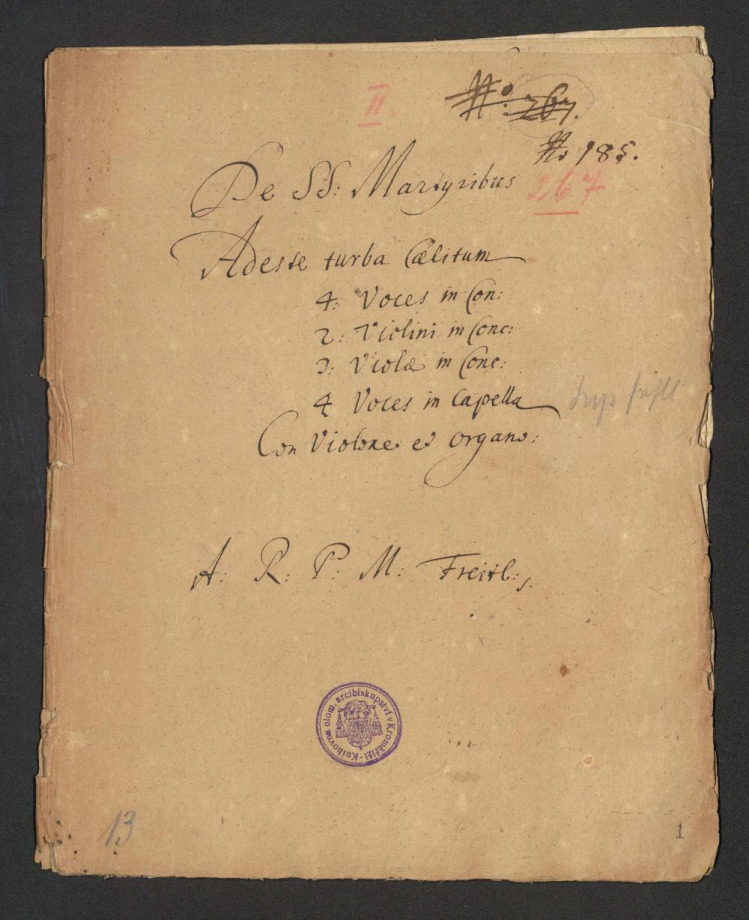 II.
No: 767.
No 185.
267
De SS: Martyribus
Adeste turba Cælitum
4: Voces in Con:
2: Violini in Conc:
3: Violæ in Conc:
4 Voces in Capella
Con Violone et organo:
A: R: P: M: Freitl:
Knihovna olom. arcibiskupství v Kroměříži
13
1